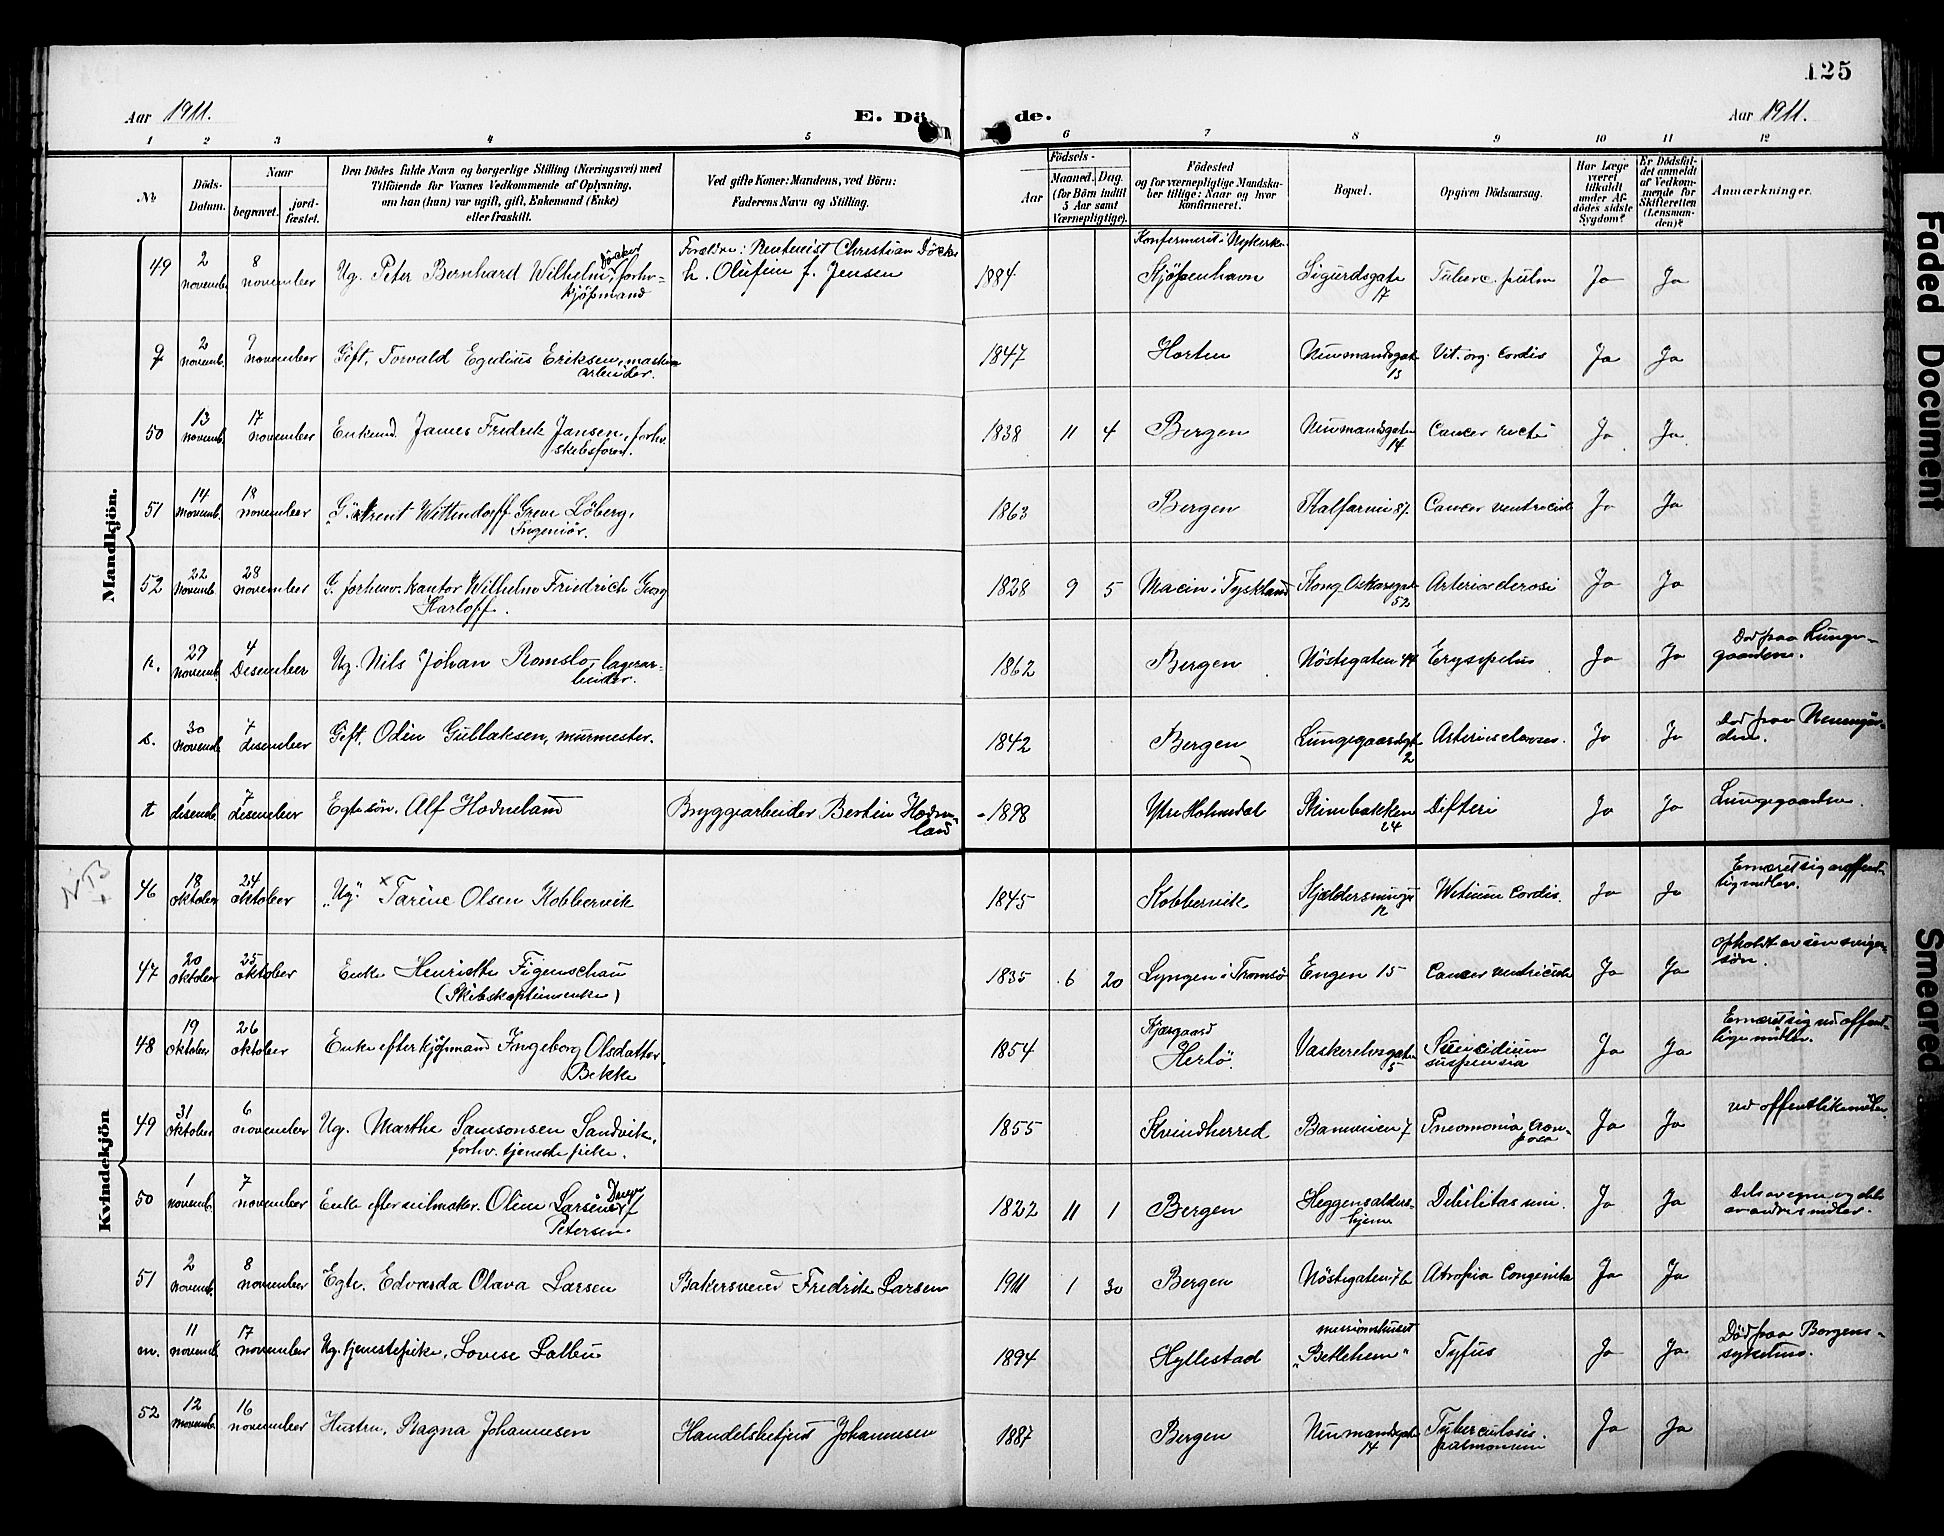 125
Aar 1911.
E. Dö
de.
Aar 1911.
1 2 3 4 5 6 7 8 9 10 11 12
No
Döds-
Datum.
Naar
begravet.
jord-
fæstet.
Den Dödes fulde Navn og borgerlige Stilling (Næringsvei) med
Tilföiende for Voxnes Vedkommende af Oplysning,
om han (hun) var ugift, gift, Enkemand (Enke)
eller fraskilt.
Ved gifte Koner: Mandens, ved Börn:
Faderens Navn og Stilling.
Födsels-
Aar
Maaned. Dag.
(for Börn indtil
5 Aar samt
Værnepligtige).
Födested
og for værnepligtige Mandska-
ber tillige: Naar og hvor
konfirmeret.
Bopæl.
Opgiven Dödsaarsag.
Har Læge
været
tilkaldt
under Af-
dödes sidste
Sygdom?
Er Dödsfal-
det anmeldt
af Vedkom-
mende for
Skifteretten
(Lensman-
den)?
Anmærkninger.
Mandkjön.
49 2 novemb. 8 november Ug. Peter Bernhard Wilhelm, forhv. kjøpmand Forældre: Rentenist Christian
h. Olufem f. Jensen 1884 Konfirmert i Nykirke
Kjøpenhavn Sigurdsgate 17 Tuberc. pulm Ja Ja
q 2 novemb. 9 november Gift, Torvald Egidius Eriksen, maskin arbeider. 1847 Horten Neumandsgate 13 Vit. org. cordis Ja Ja
50 13 novemb. 17 november Enkemd. James Fredrik Jansen, forhv. skibsfører. 1838 11 4 Bergen Neumandsgaten 14 Cancer recti Ja Ja.
51 14 novemb. 18 november Wittendorff Greve Löberg, Ingeniör. 1863 Bergen Kalfarvei 87. Cancer ventriculi Ja Ja
52 22 novemb. 28 november G. forhenv. Kantor Wilhelm Friedrich Georg Harloff. 1828 9 5 Macin i Tyskland Kong Oskarsgate 52 Arteriosclerosi Ja Ja
r. 29 novemb. 4 Desember Ug. Nils Johan Romslo, lagerar-
beider. 1862 Bergen Nöstegaten 44 Erysipelas Ja Ja Död paa Lunge-
gaarden.
s. 30 novemb. 4 desember Gift. Odin Gullaksen, murmester. 1842 Bergen Lungegaardsgt. 2 Arteriosclerose. Ja Ja Död paa Nevengår-
den.
t 1 desemb. 7 desember Egte sön. Alf Hodneland Bryggearbeider Bertin Hodne-
land 1898 Ytre Holmedal Skivebakken 24 Difteri Ja Ja Lungegaarden.
Kvindekjön
NB
46 18 oktober 24 oktober "Ug" × Tarine Olsen Kobbervik 1845 Kobbervik Kjeldersmuget 12 Vitium Cordis. Ja Ja Ernæret sig av offent-
lig midler.
47 20 oktober 25 oktober Enke Henriette Figenschau
(Skibskapteinsenke) 1835 6 20 Lyngen i Tromsø Engen 15 Cancer ventriculi Ja Ja opholdt av sin sviger-
søn.
48 19 oktober 26 oktober Enke efter kjøpmand Ingeborg Olsdatter Bekke 1854 Kjærgaard
Herlö. Vaskerelvsgaten 5 Suicidium suspensia Ja Ja Ernæret sig ved offent-
lige midler.
49 31 oktober 6 november Ug. Marthe Samsonsen Sandvik,
forhv. tjenestepike. 1855 Kvindherred Banveien 7 Pneumonia croup-
posa Ja Ja ved offentlike midler
50 1 novemb. 7 november Enke efter seilmaker. Oline Larsine Dreyer f. Petersen. 1822 11 1 Bergen Heggens alders-
hjem Debilitas seni. Ja Ja Dels av egne og dels
av andres midler.
51 2 novemb. 8 november Egte. Edvarda Olava Larsen Bakersvend Fredrik Larsen 1911 1 30 Bergen Nöstegaten 76 Atrofia Congenita Ja Ja
m. 11 novemb. 17 november Ug. tjenestepike, Lovise Salbu 1894 Hyllestad missionshuset
"Betlehem" Tyfus Ja Ja Död paa Bergens
sykehus.
52 12 novemb. 16 november Hustru, Ragna Johannesen Handelsbetjent Johannesen 1887 Bergen Neumandsgate 14 Tuberculosis.
pulmonum Ja Ja
Faded Document
Smeared